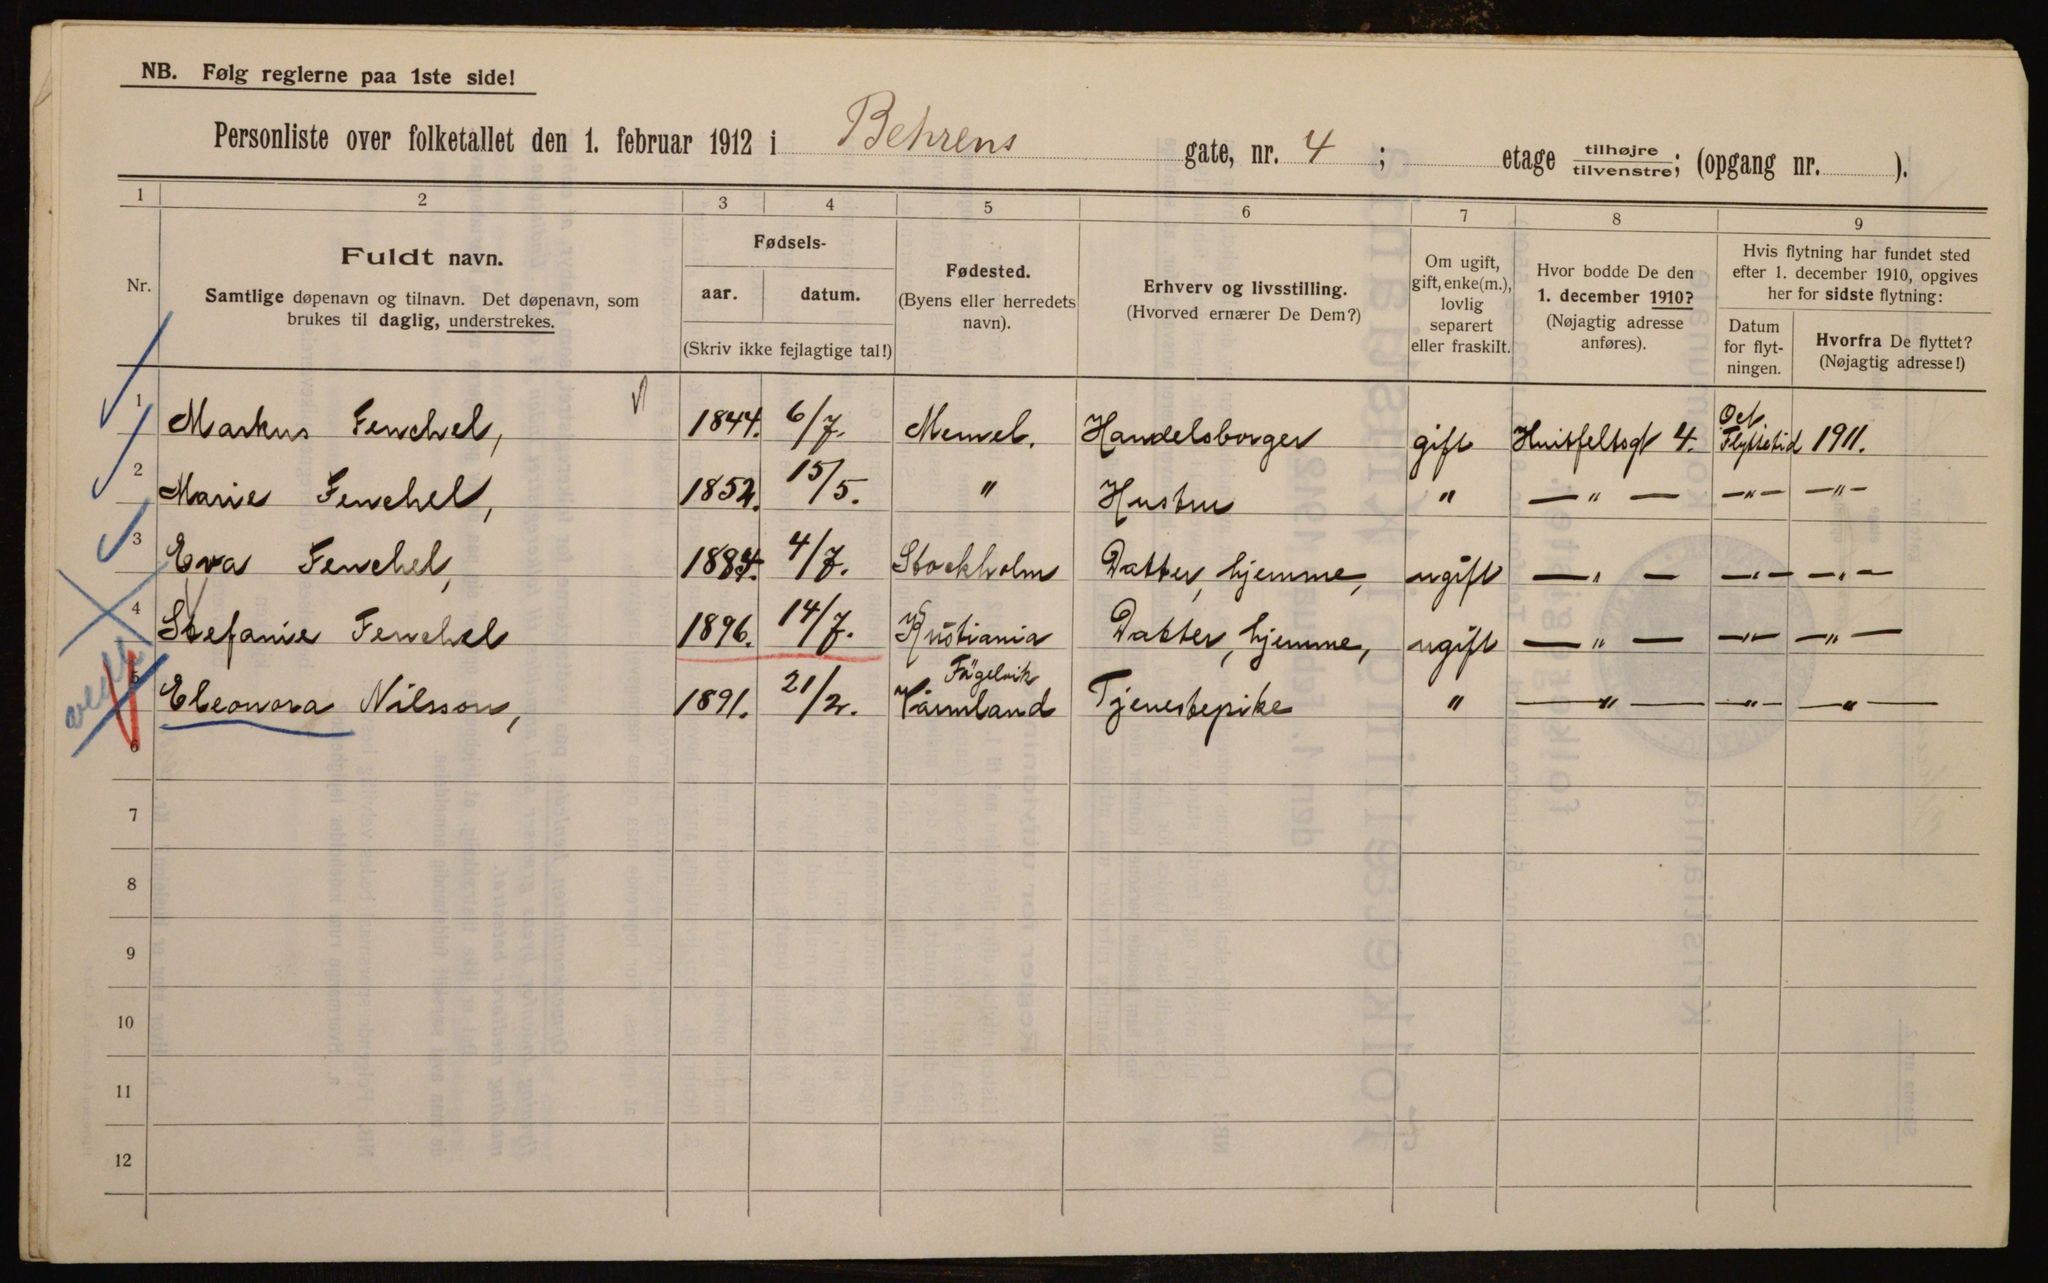 NB. Følg reglerne paa 1ste side!
Personliste over folketallet den 1. februar 1912 i Behrens gate, nr. 4 ; etage tilhøjre/tilvenstre; (opgang nr. ).
1 2 3 4 5 6 7 8 9
Nr.
Fuldt navn.
Samtlige døpenavn og tilnavn. Det døpenavn, som
brukes til daglig, understrekes.
Fødsels-
aar. datum.
(Skriv ikke fejlagtige tal!)
Fødested.
(Byens eller herredets
navn).
Erhverv og livsstilling.
(Hvorved ernærer De Dem?)
Om ugift,
gift, enke(m.),
lovlig
separert
eller fraskilt.
Hvor bodde De den
1. december 1910?
(Nøjagtig adresse
anføres).
Hvis flytning har fundet sted
efter 1. december 1910, opgives
her for sidste flytning:
Datum
for flyt-
ningen.
Hvorfra De flyttet?
(Nøjagtig adresse!)
1 Markus Fenchel, 1844. 6/7. Memel. Handelsborger gift Huitfeltsgt 4. Oct Flyttetid 1911.
2 Marie Fenchel, 1852. 15/5. " Hustru " — " — —"— —"—
3 Eva Fenchel, 1884. 4/7. Stockholm Datter, hjemme, ugift — " — —"— —"—
4 Stefanie Fenchel 1896. 14/7. Kristiania Datter, hjemme, ugift — " — —"— —"—
5 Eleonora Nilsson, 1891. 21/2. Fågelvik Värmland Tjenestepike " — " — —"— —"—
6
7
8
9
10
11
12